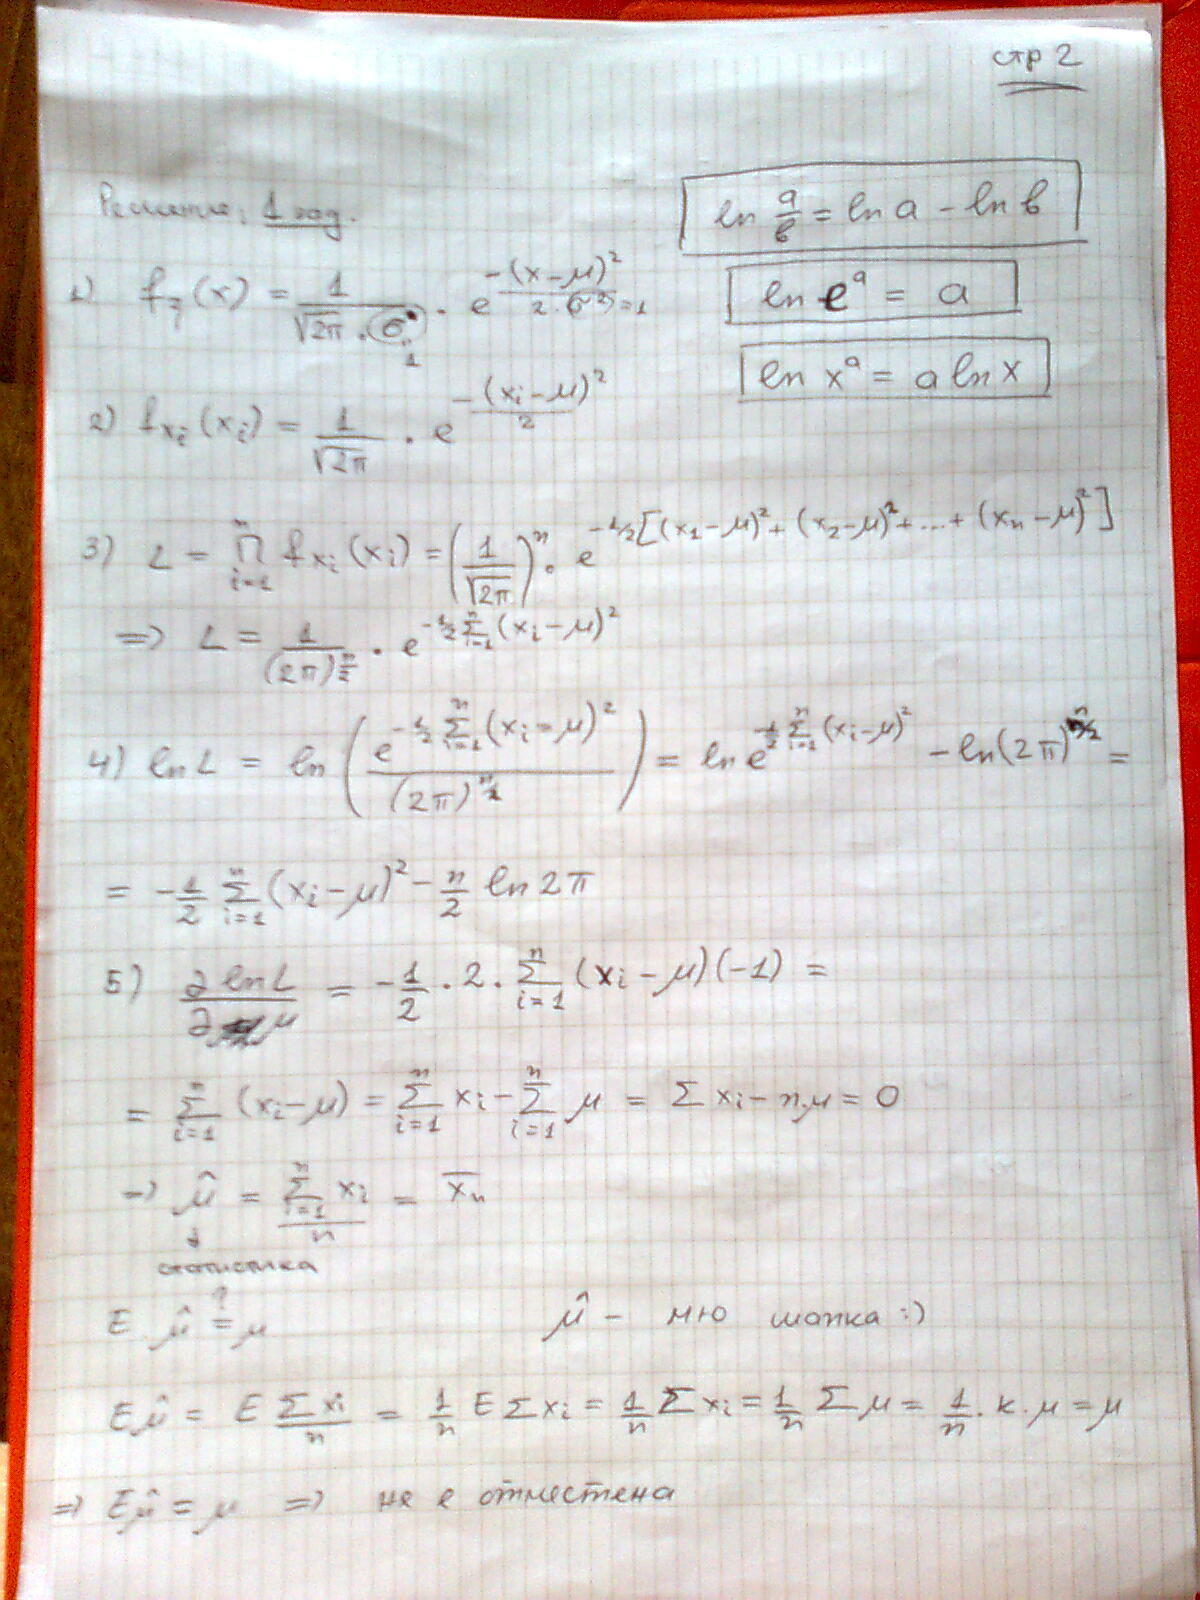 стр 2
Решение: 1 зад.
ln a/b = ln a - ln b
ln e^a = a
ln x^a = a ln x
1) f_ξ(x) = 1/(√2π . σ) . e^(-(x-μ)²/(2.σ²)) = 1
1
2) f_xi(xi) = 1/√2π . e^(-(xi-μ)²/2)
3) L = ∏_{i=1}^n f_xi(xi) = (1/√2π)^n . e^(-1/2[(x1-μ)² + (x2-μ)² + ... + (xn-μ)²])
=> L = 1/(2π)^(n/2) . e^(-1/2 Σ_{i=1}^n (xi-μ)²)
4) ln L = ln (e^(-1/2 Σ_{i=1}^n (xi-μ)²)/(2π)^(n/2)) = ln e^(-1/2 Σ_{i=1}^n (xi-μ)²) - ln(2π)^(n/2) =
= -1/2 Σ_{i=1}^n (xi-μ)² - n/2 ln 2π
5) ∂ ln L/∂μ = -1/2 . 2 . Σ_{i=1}^n (xi-μ)(-1) =
= Σ_{i=1}^n (xi-μ) = Σ_{i=1}^n xi - Σ_{i=1}^n μ = Σ xi - n.μ = 0
→ μ̂ = Σ_{i=1}^n xi/n = x̄n
↓
статистика
E μ̂ ?= μ
μ̂ - мю шапка :)
Eμ̂ = E Σ xi/n = 1/n E Σ xi = 1/n Σ xi = 1/n Σ μ = 1/n . к . μ = μ
=> Eμ̂ = μ => не е отместена